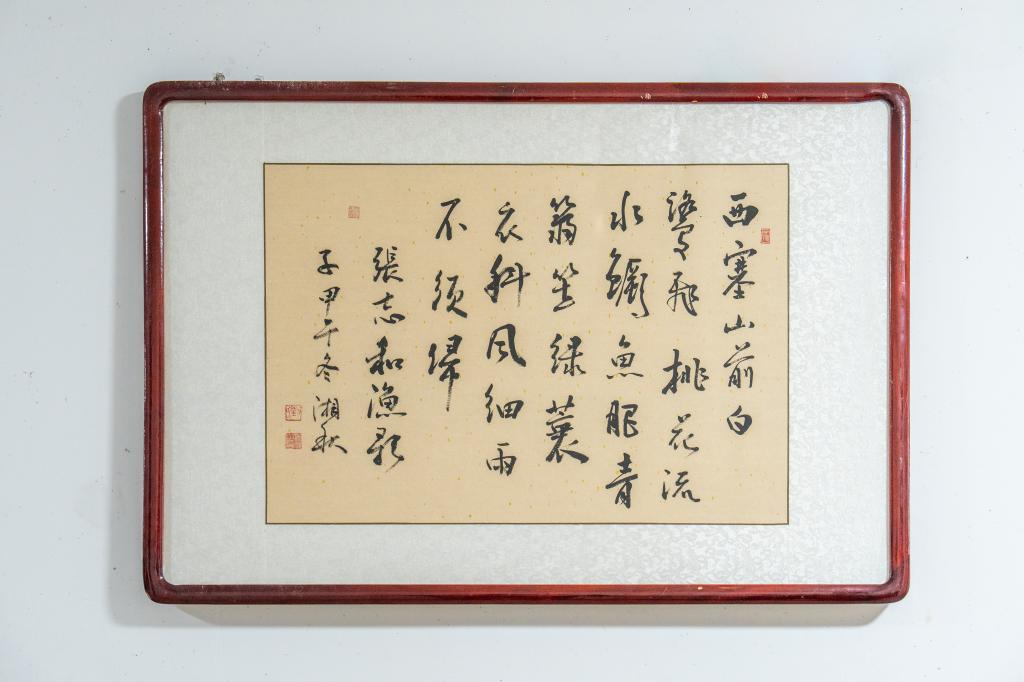 西塞山前白
鷺飛桃花流
水鱖魚肥青
篛笠緑蓑
衣斜風細雨
不須歸
張志和漁歌
子甲午冬湘秋